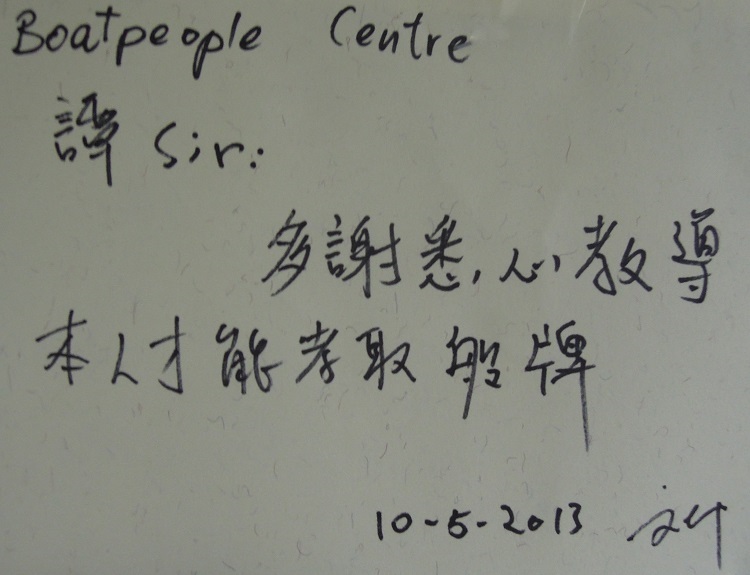 Boatpeople Centre
譚 Sir:
多謝悉心教導
本人才能考取船牌
10-5-2013